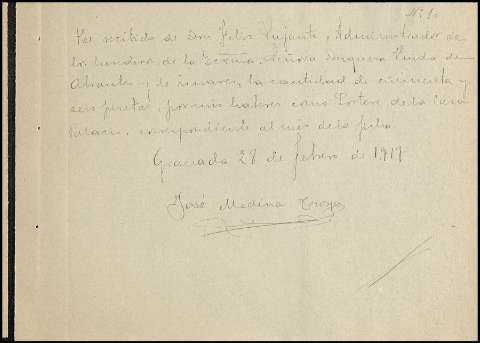 N. 1.
He recibido de Don Felix Pujante, Administrador de
los herederos de la Excma. Señora Duquesa Viuda de
Abrantes y de Linares, la cantidad de cincuenta y
seis pesetas, por mis haberes como Portero de la Casa
Palacio, correspondiente al mes de la fecha
Granada 28 de febrero de 1917
José Medina